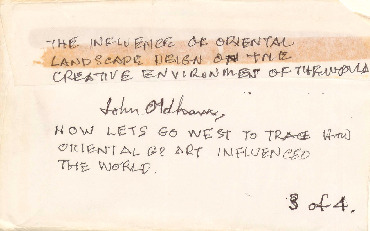 THE INFLUENCE OF ORIENTAL
LANDSCAPE DEIGN ON THE
CREATIVE ENVIRONMENT OF THE WORLD
John Oldham,
NOW LETS GO WEST TO TRACE HOW
ORIENTAL ART INFLUENCED
THE WORLD.
3 of 4.